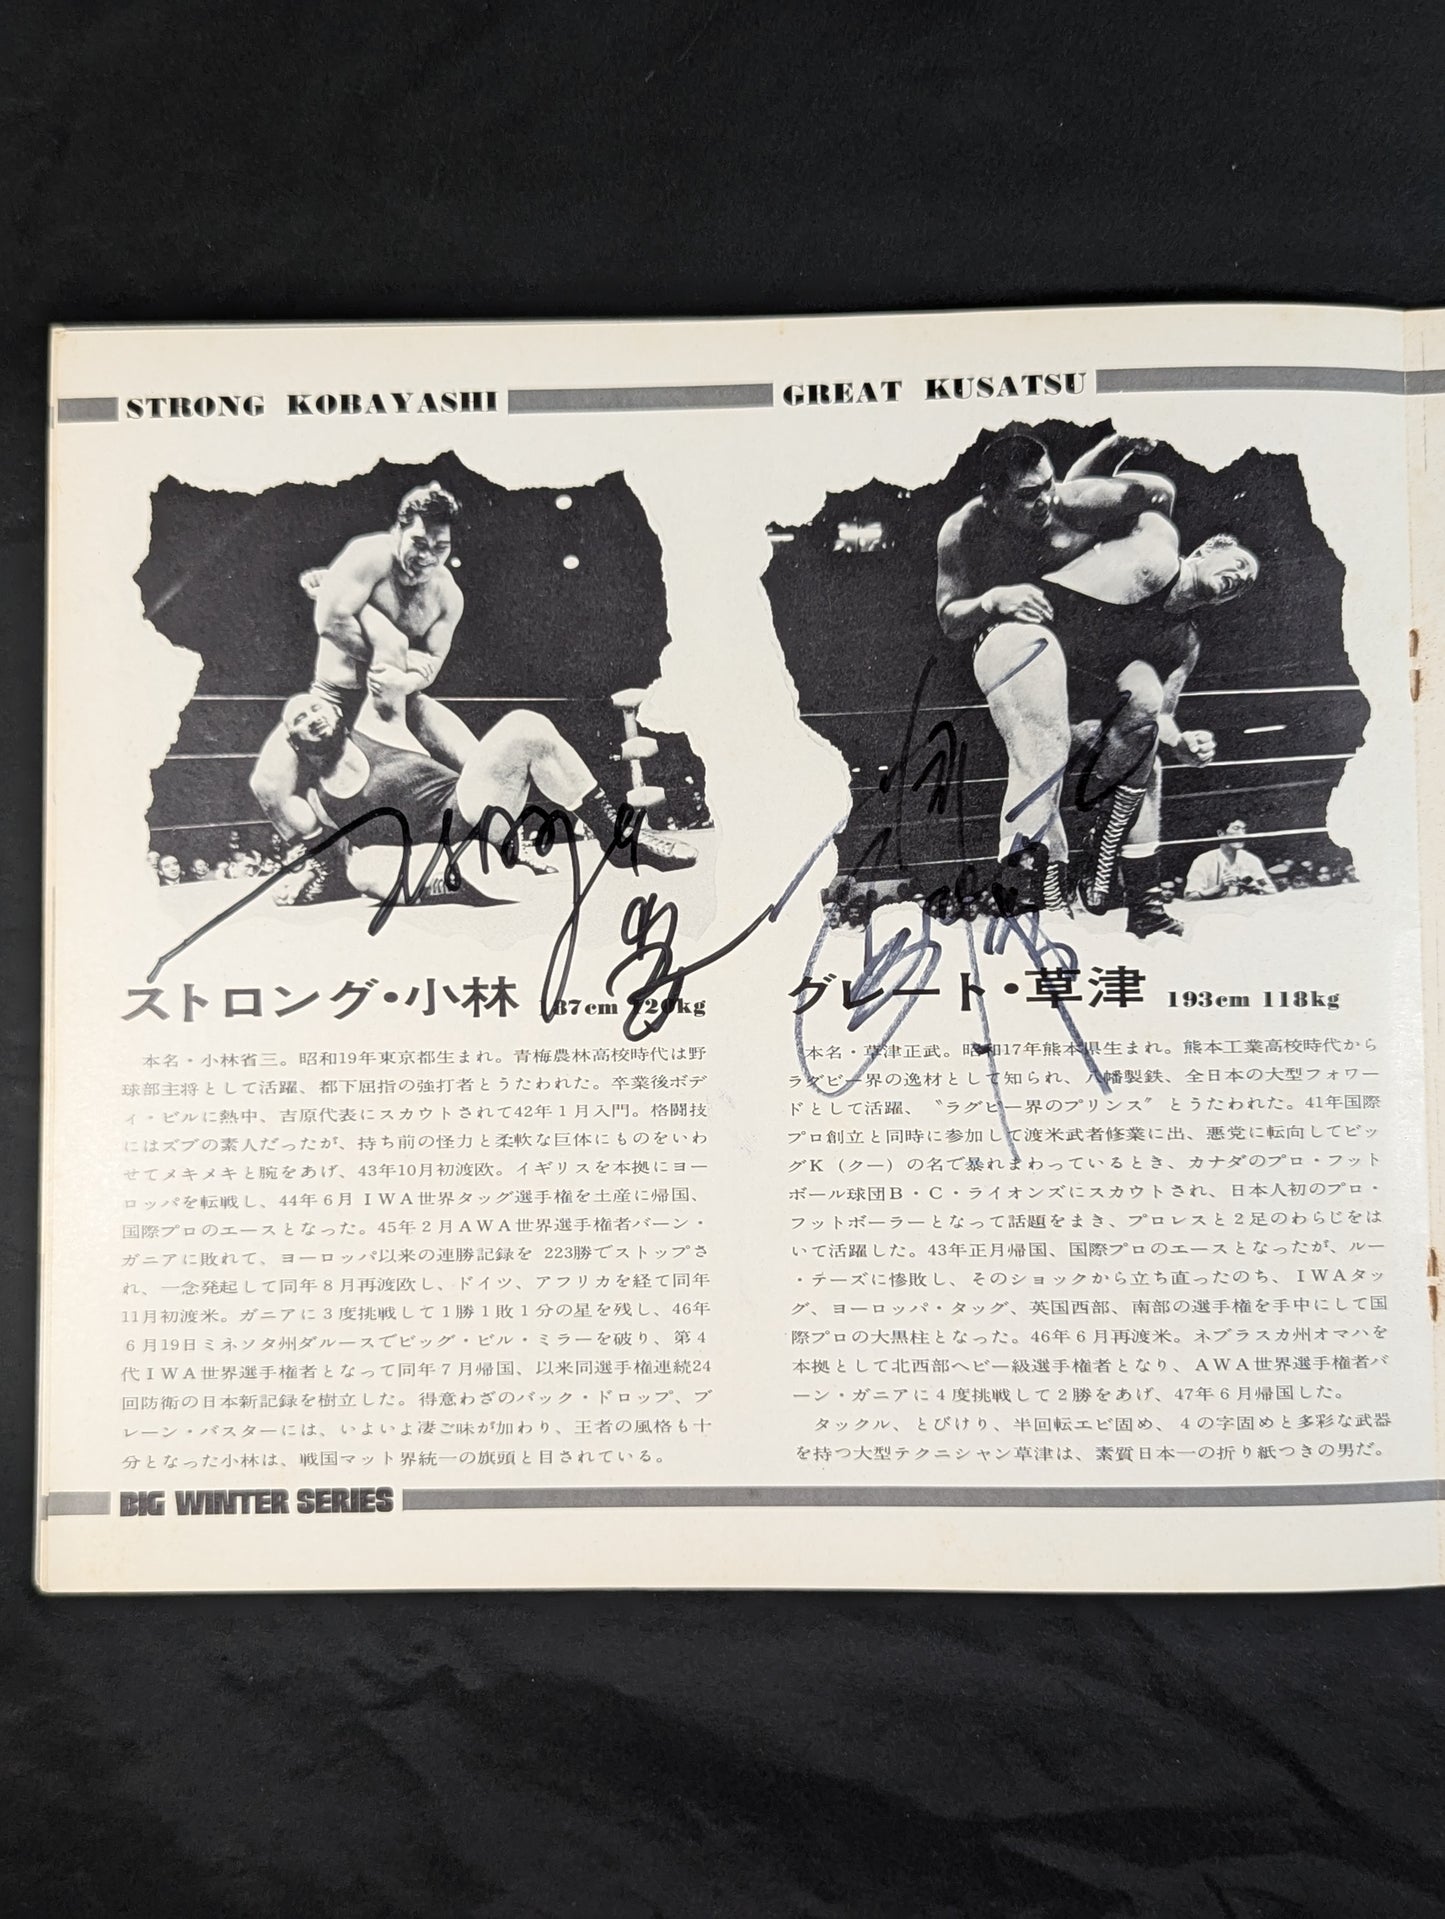 STRONG KOBAYASHI
ストロング・小林 187cm 120kg
本名・小林省三。昭和19年東京都生まれ。青梅農林高校時代は野
球部主将として活躍、都下屈指の強打者とうたわれた。卒業後ボデ
ィ・ビルに熱中、吉原代表にスカウトされて42年1月入門。格闘技
にはズブの素人だったが、持ち前の怪力と柔軟な巨体にものをいわ
せてメキメキと腕をあげ、43年10月初渡欧。イギリスを本拠にヨー
ロッパを転戦し、44年6月IWA世界タッグ選手権を土産に帰国、
国際プロのエースとなった。45年2月AWA世界選手権者バーン・
ガニアに敗れて、ヨーロッパ以来の連勝記録を 223勝でストップさ
れ、一念発起して同年8月再渡欧し、ドイツ、アフリカを経て同年
11月初渡米。ガニアに3度挑戦して1勝1敗1分の星を残し、46年
6月19日ミネソタ州ダルースでビッグ・ビル・ミラーを破り、第4
代IWA世界選手権者となって同年7月帰国、以来同選手権連続24
回防衛の日本新記録を樹立した。得意わざのバック・ドロップ、ブ
レーン・バスターには、いよいよ凄ご味が加わり、王者の風格も十
分となった小林は、戦国マット界統一の旗頭と目されている。
BIG WINTER SERIES
GREAT KUSATSU
グレート・草津 193cm 118kg
本名・草津正武。昭和17年熊本県生まれ。熊本工業高校時代から
ラグビー界の逸材として知られ、八幡製鉄、全日本の大型フォワー
ドとして活躍、〝ラグビー界のプリンス〞とうたわれた。41年国際
プロ創立と同時に参加して渡米武者修業に出、悪党に転向してビッ
グK（クー）の名で暴れまわっているとき、カナダのプロ・フット
ボール球団B・C・ライオンズにスカウトされ、日本人初のプロ・
フットボーラーとなって話題をまき、プロレスと2足のわらじをは
いて活躍した。43年正月帰国、国際プロのエースとなったが、ルー
・テーズに惨敗し、そのショックから立ち直ったのち、IWAタッ
グ、ヨーロッパ・タッグ、英国西部、南部の選手権を手中にして国
際プロの大黒柱となった。46年6月再渡米。ネブラスカ州オマハを
本拠として北西部ヘビー級選手権者となり、AWA世界選手権者バ
ーン・ガニアに4度挑戦して2勝をあげ、47年6月帰国した。
タックル、とびけり、半回転エビ固め、4の字固めと多彩な武器
を持つ大型テクニシャン草津は、素質日本一の折り紙つきの男だ。